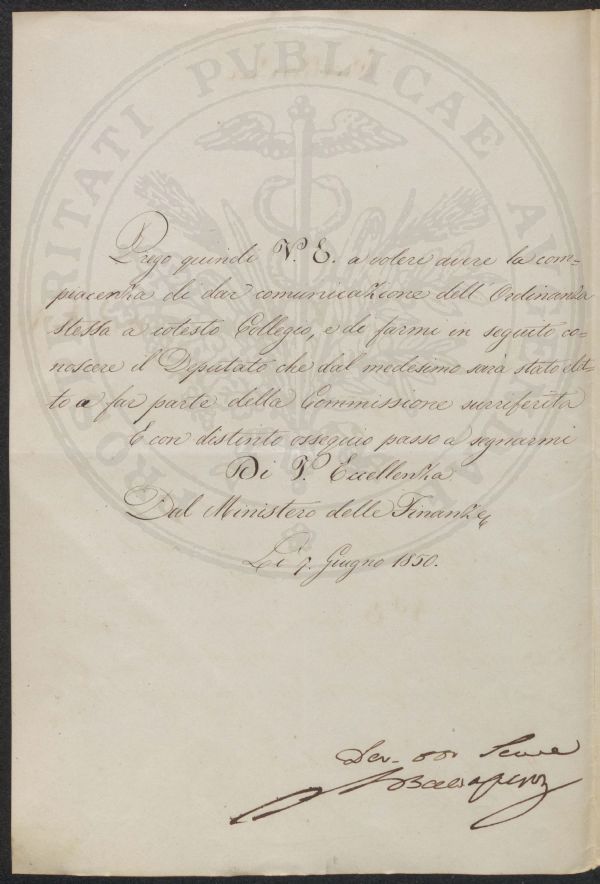 Prego quindi V. E. a volere avere la com-
piacenza di dar comunicazione dell'Ordinanza
stessa a cotesto Collegio, e di farmi in seguito co-
noscere il Deputato che dal medesimo sarà stato elet-
to a far parte della Commissione surriferita
E con distinto ossequio passo a segnarmi
Di V. Eccellenza
Dal Ministero delle Finanze,
Li 7. Giugno 1850.
PUBLICAE